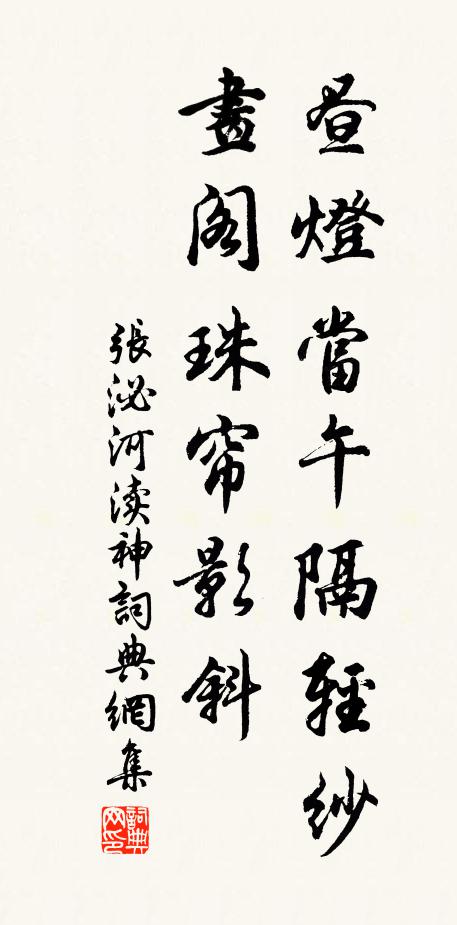 昼燈當午隔輕紗
畫閣珠帘影斜
張泌河渎神詞典網集
詞典网印